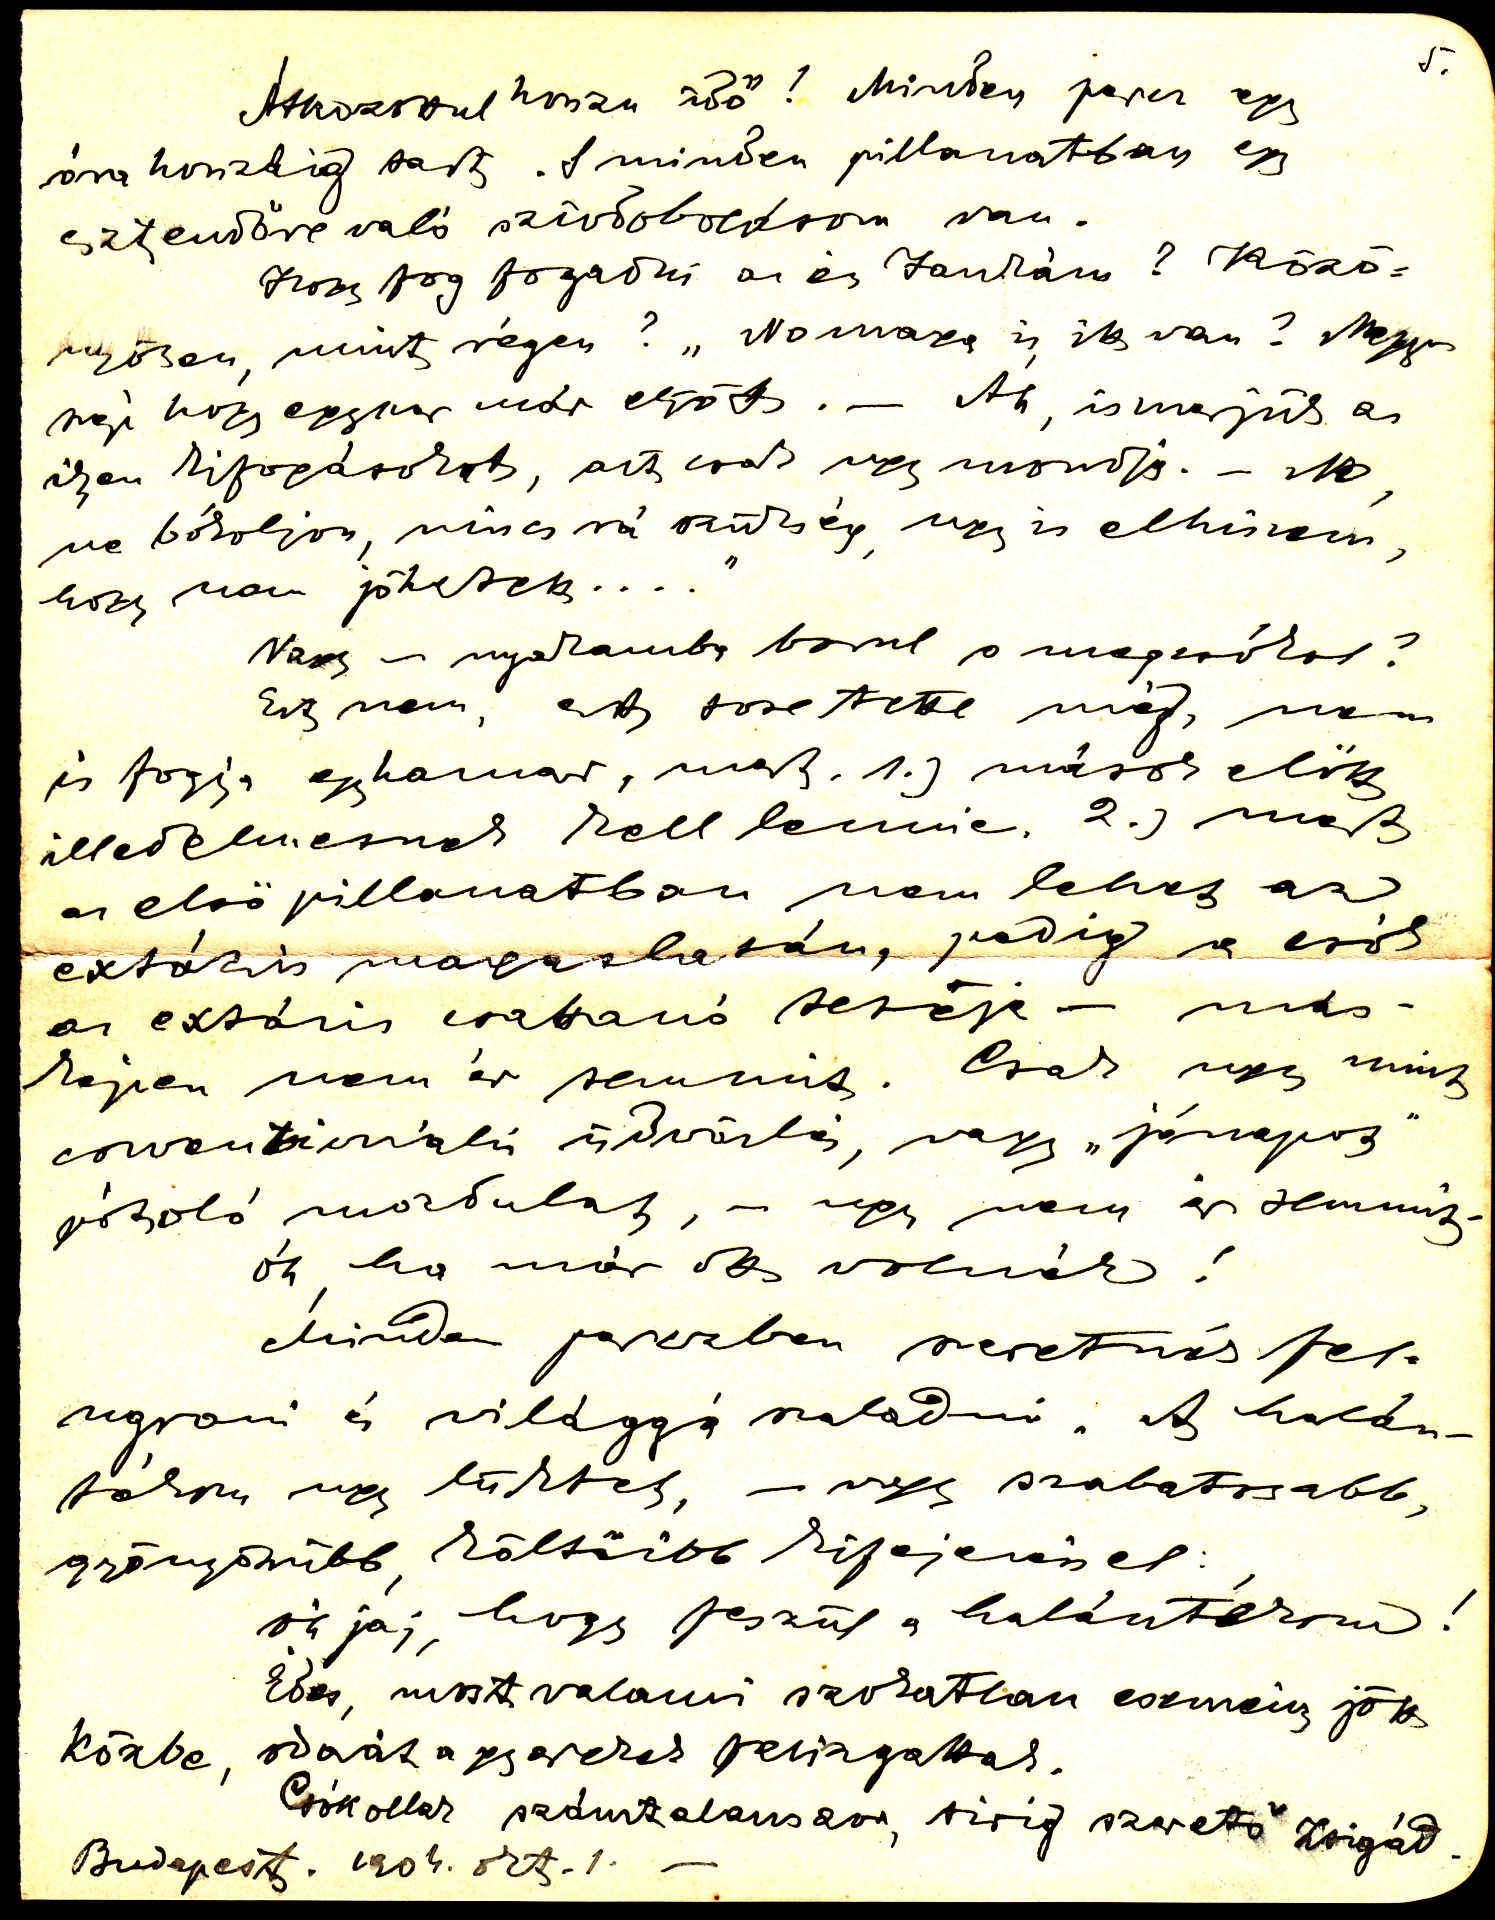 5.
Átkozottul hosszu idő! Minden percz egy
óra hosztáig tart. S minden pillanatban egy
esztendőre való szívdobogásom van.
Hogy fog fogadni az én Jankám? Közö-
nyösen, mint régen? „No maga is itt van?
hogy egyszer már eljött. — Ah, ismerjük az
ilyen kifogásokat, azt csak ugy mondja. —
ne bókoljon, nincs rá szükség, ugy is elhiszem,
hogy nem jöhetett...."
Vagy — nyakamba borul s megcsókol?
Ezt nem, ezt sose tette még, nem
is fogja egyhamar, mert. 1.) mások előtt
illedelmesnek kell lennie. 2.) mert
az első pillanatban nem lehet az
extázis magaslatán, pedig a csók
az extázis csattanó tetője — más-
képen nem ér semmit. Csak ugy mint
conventionális üdvözlés, vagy „jónapot"
pótoló mozdulat, — ugy nem ér semmit.
Óh, ha már ott volnék!
Minden perczben szeretnék fel-
ugrani és világgá szaladni. A halán-
tékom ugy lüktet, — vagy szabatosabb,
gyönyörübb, költőibb kifejezéssel:
óh jaj, hogy feszül a halántékom!
Édes, most valami szokatlan esemény jött
közbe, odaát a gyerekek felizgattak.
Csókollak számtalanszor, sirig szerető Zsigád.
Budapest. 1904. okt. 1. —